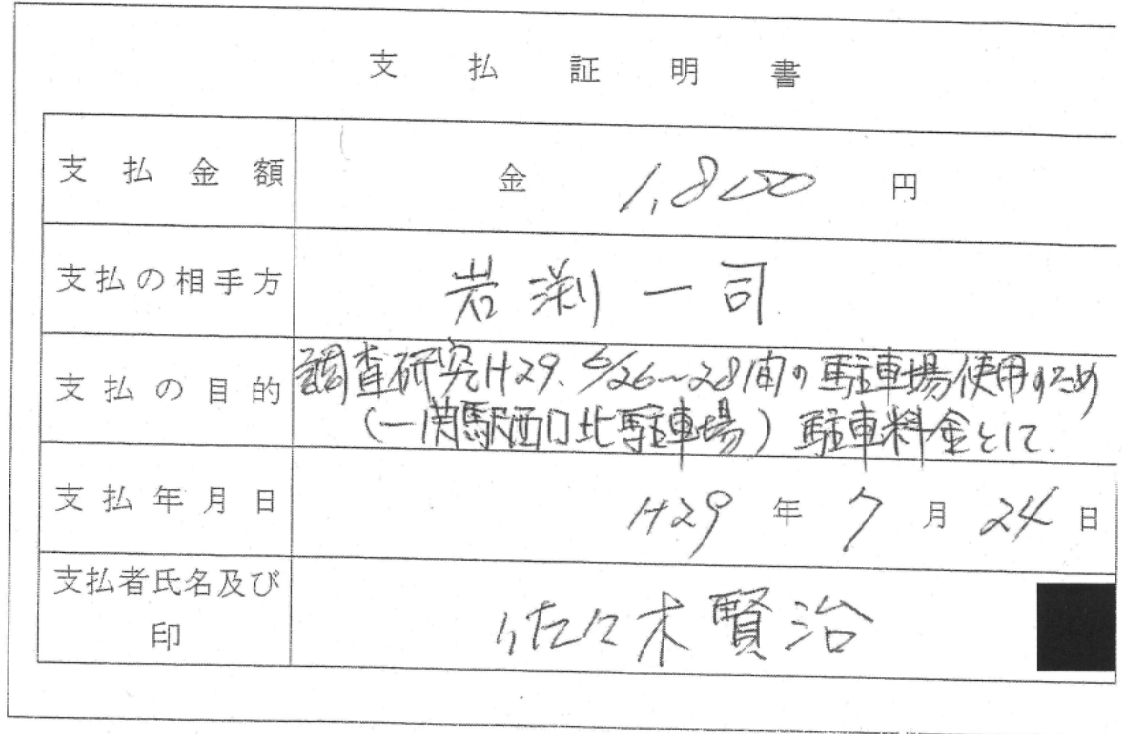 支払証明書
支払金額 金 1,800 円
支払の相手方 岩渕一司
支払の目的 調査研究H29.6/26~28間の駐車場使用のため
(一関駅西口北駐車場)駐車料金として.
支払年月日 H29 年 7 月 24 日
支払者氏名及び
印 佐々木賢治